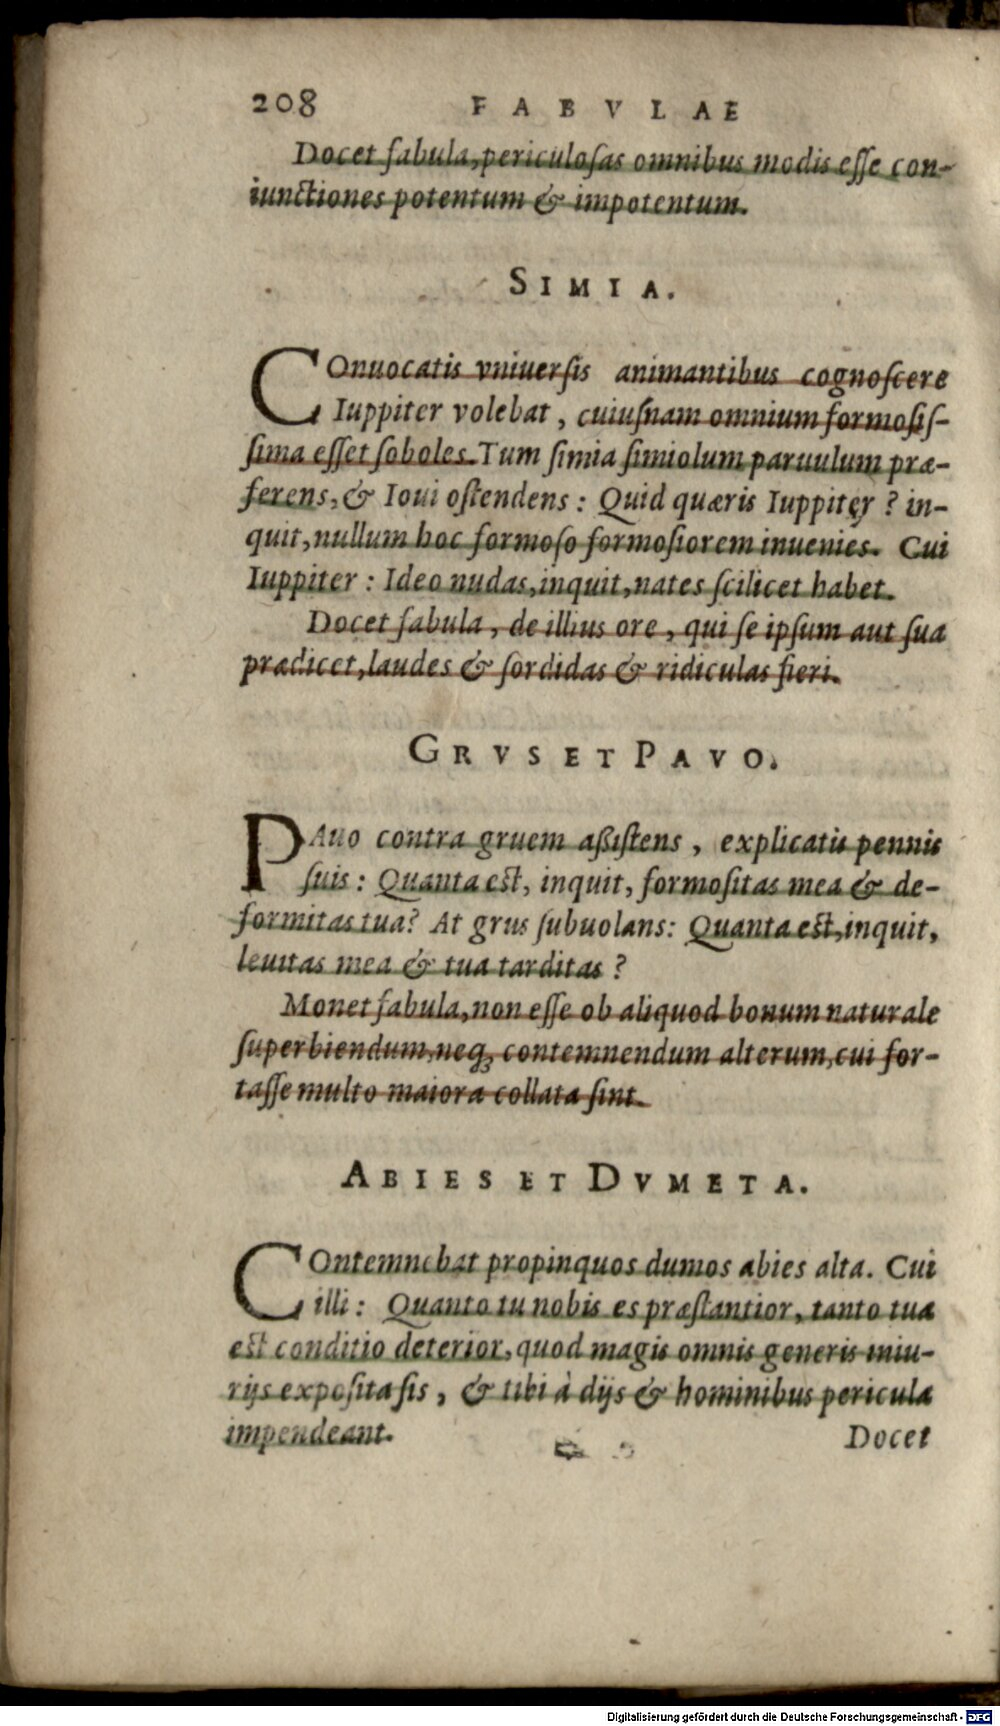 208 FABVLAE
Docet fabula, periculosas omnibus modis esse con-
iunctiones potentum & impotentum.
SIMIA.
COnuocatis vniuersis animantibus cognoscere
Iuppiter volebat, cuiusnam omnium formosis-
sima esset soboles. Tum simia simiolum paruulum præ-
ferens, & Ioui ostendens: Quid quæris Iuppiter? in-
quit, nullum hoc formoso formosiorem inuenies. Cui
Iuppiter: Ideo nudas, inquit, nates scilicet habet.
Docet fabula, de illius ore, qui se ipsum aut sua
prædicet, laudes & sordidas & ridiculas fieri.
GRVS ET PAVO.
PAuo contra gruem aßistens, explicatis pennis
suis: Quanta est, inquit, formositas mea & de-
formitas tua? At grus subuolans: Quanta est, inquit,
leuitas mea & tua tarditas?
Monet fabula, non esse ob aliquod bonum naturale
superbiendum, neq; contemnendum alterum, cui for-
tasse multo maiora collata sint.
ABIES ET DVMETA.
COntemnebat propinquos dumos abies alta. Cui
illi: Quanto tu nobis es præstantior, tanto tua
est conditio deterior, quod magis omnis generis iniu-
rijs exposita sis, & tibi à dijs & hominibus pericula
impendeant.
Docet
Digitalisierung gefördert durch die Deutsche Forschungsgemeinschaft - DFG